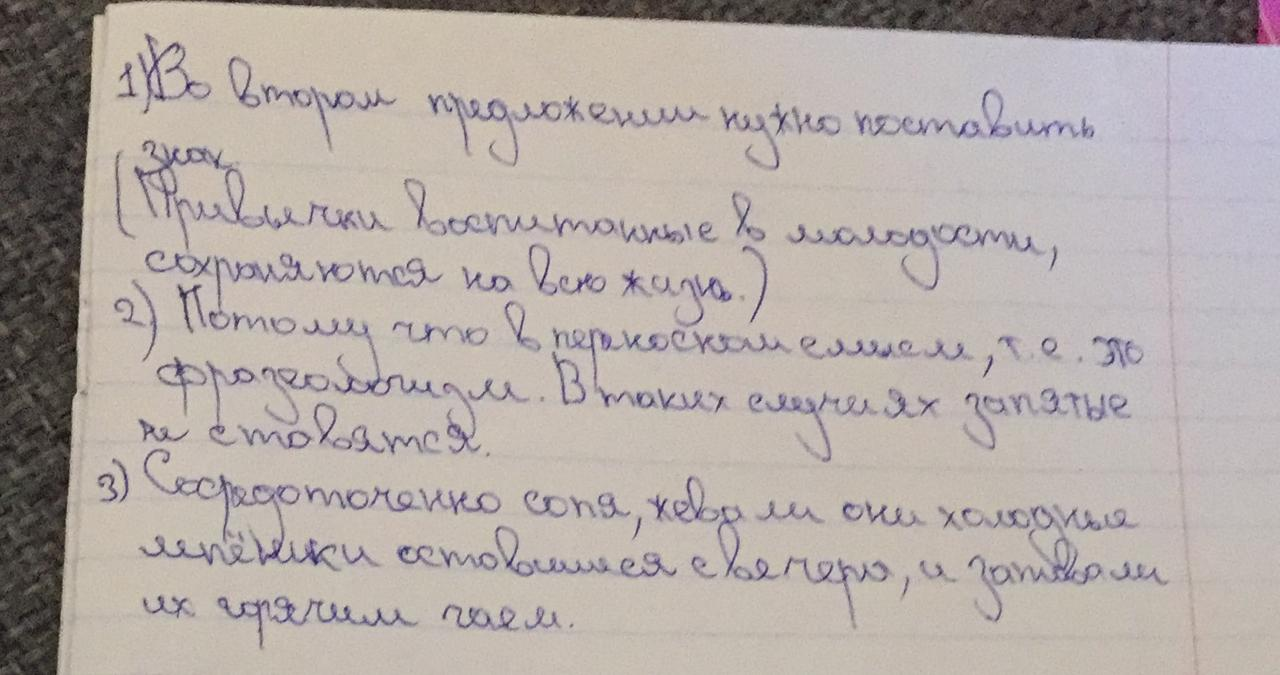 1) Во втором предложении нужно поставить
знак
(Привычки воспитанные в молодости,
сохраняются на всю жизнь.)
2) Потому что в переносном смысле, т.е. это
фразеологизм. В таких случаях запятые
не ставятся.
3) Сосредоточенно сопя, жевали они холодные
лепёшки оставшиеся с вечера, и запивали
их горячим чаем.